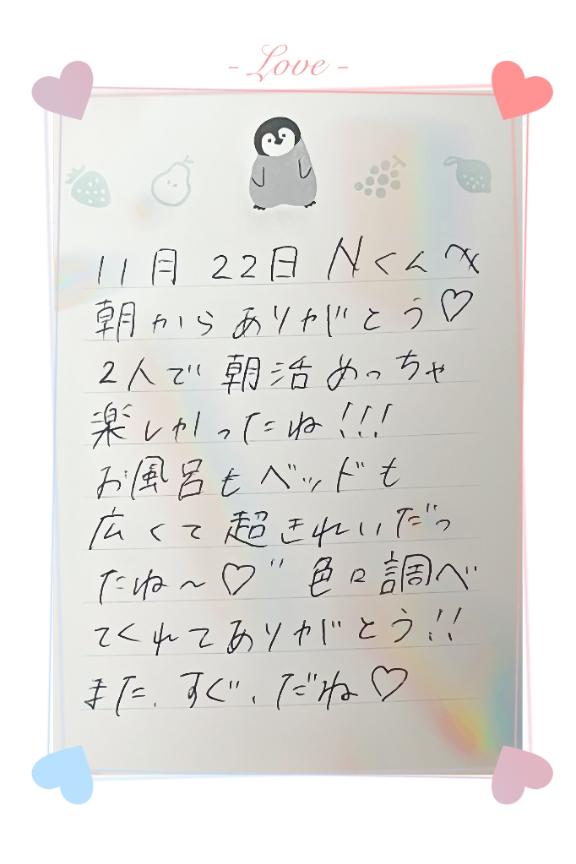 - Love -
11月 22日 Nくんへ
朝からありがとう♡
2人で朝活めっちゃ
楽しかったね!!!
お風呂もベッドも
広くて超きれいだっ
たね〜♡" 色々調べ
てくれてありがとう!!
また、すぐ、だね♡